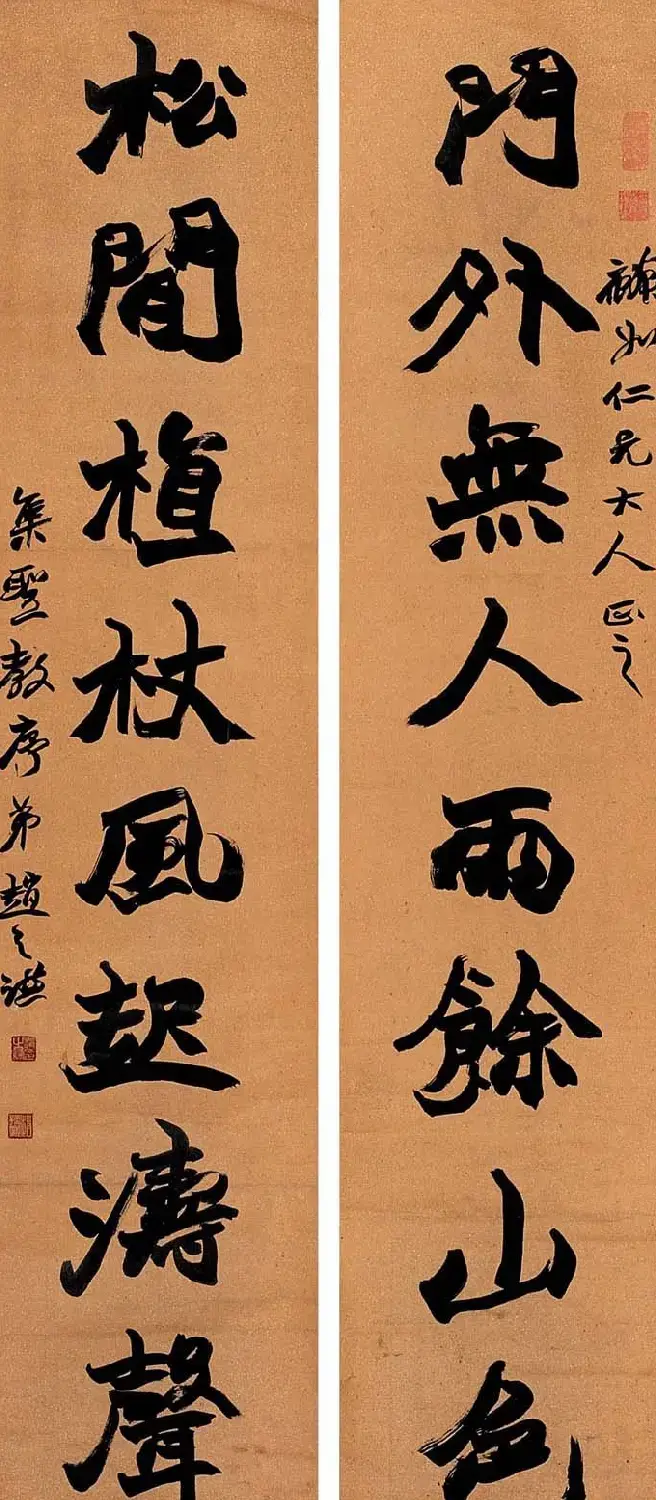 如仁兄大人正之
門外無人雨餘山色
松間植杖風起濤聲
集聖教序弟趙之謙